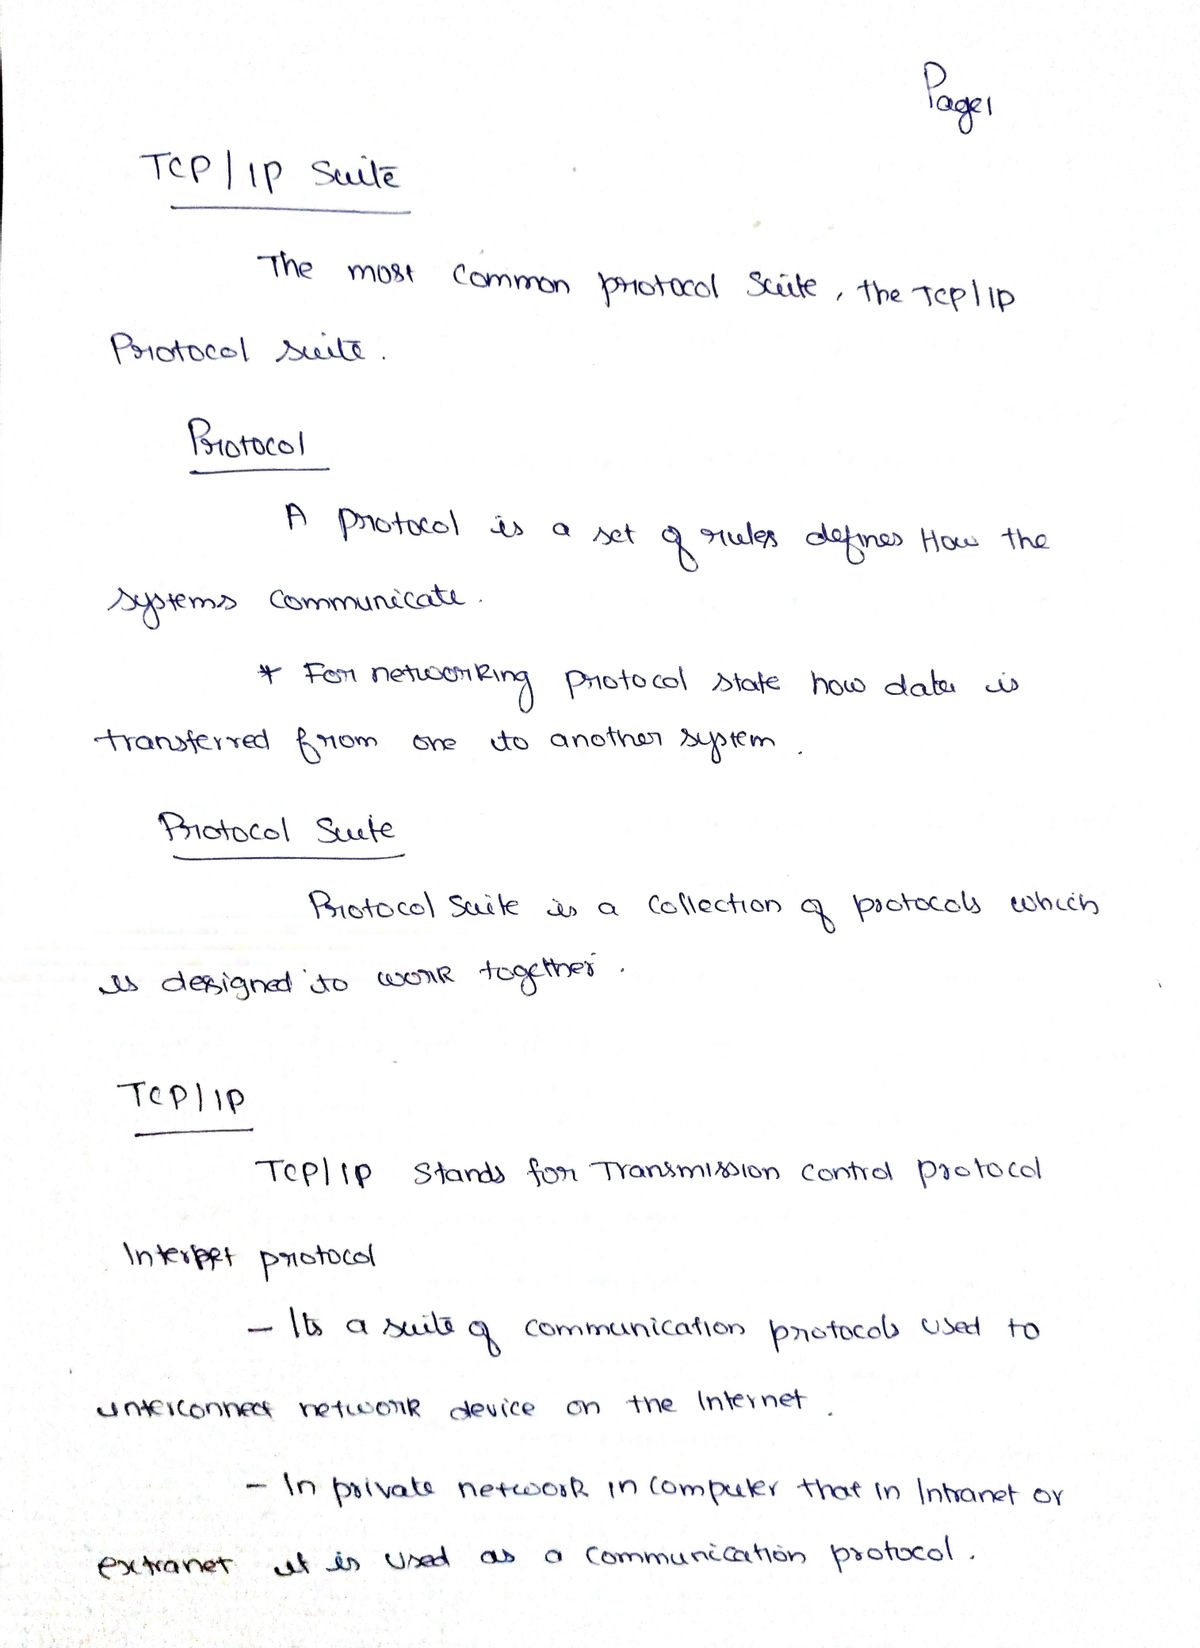 Page 1
TCP/IP Suite
The most common protocol Suite, the TCP/IP
Protocol suite.
Protocol
A protocol is a set of rules defines How the
systems communicate.
* For networking protocol state how data is
transferred from one to another system.
Protocol Suite
Protocol Suite is a collection of protocols which
is designed to work together.
TCP/IP
TCP/IP Stands for Transmission control protocol
Internet protocol
- Its a suite of communication protocols used to
interconnect network device on the Internet.
- In private network in computer that in Intranet or
extranet it is used as a communication protocol.